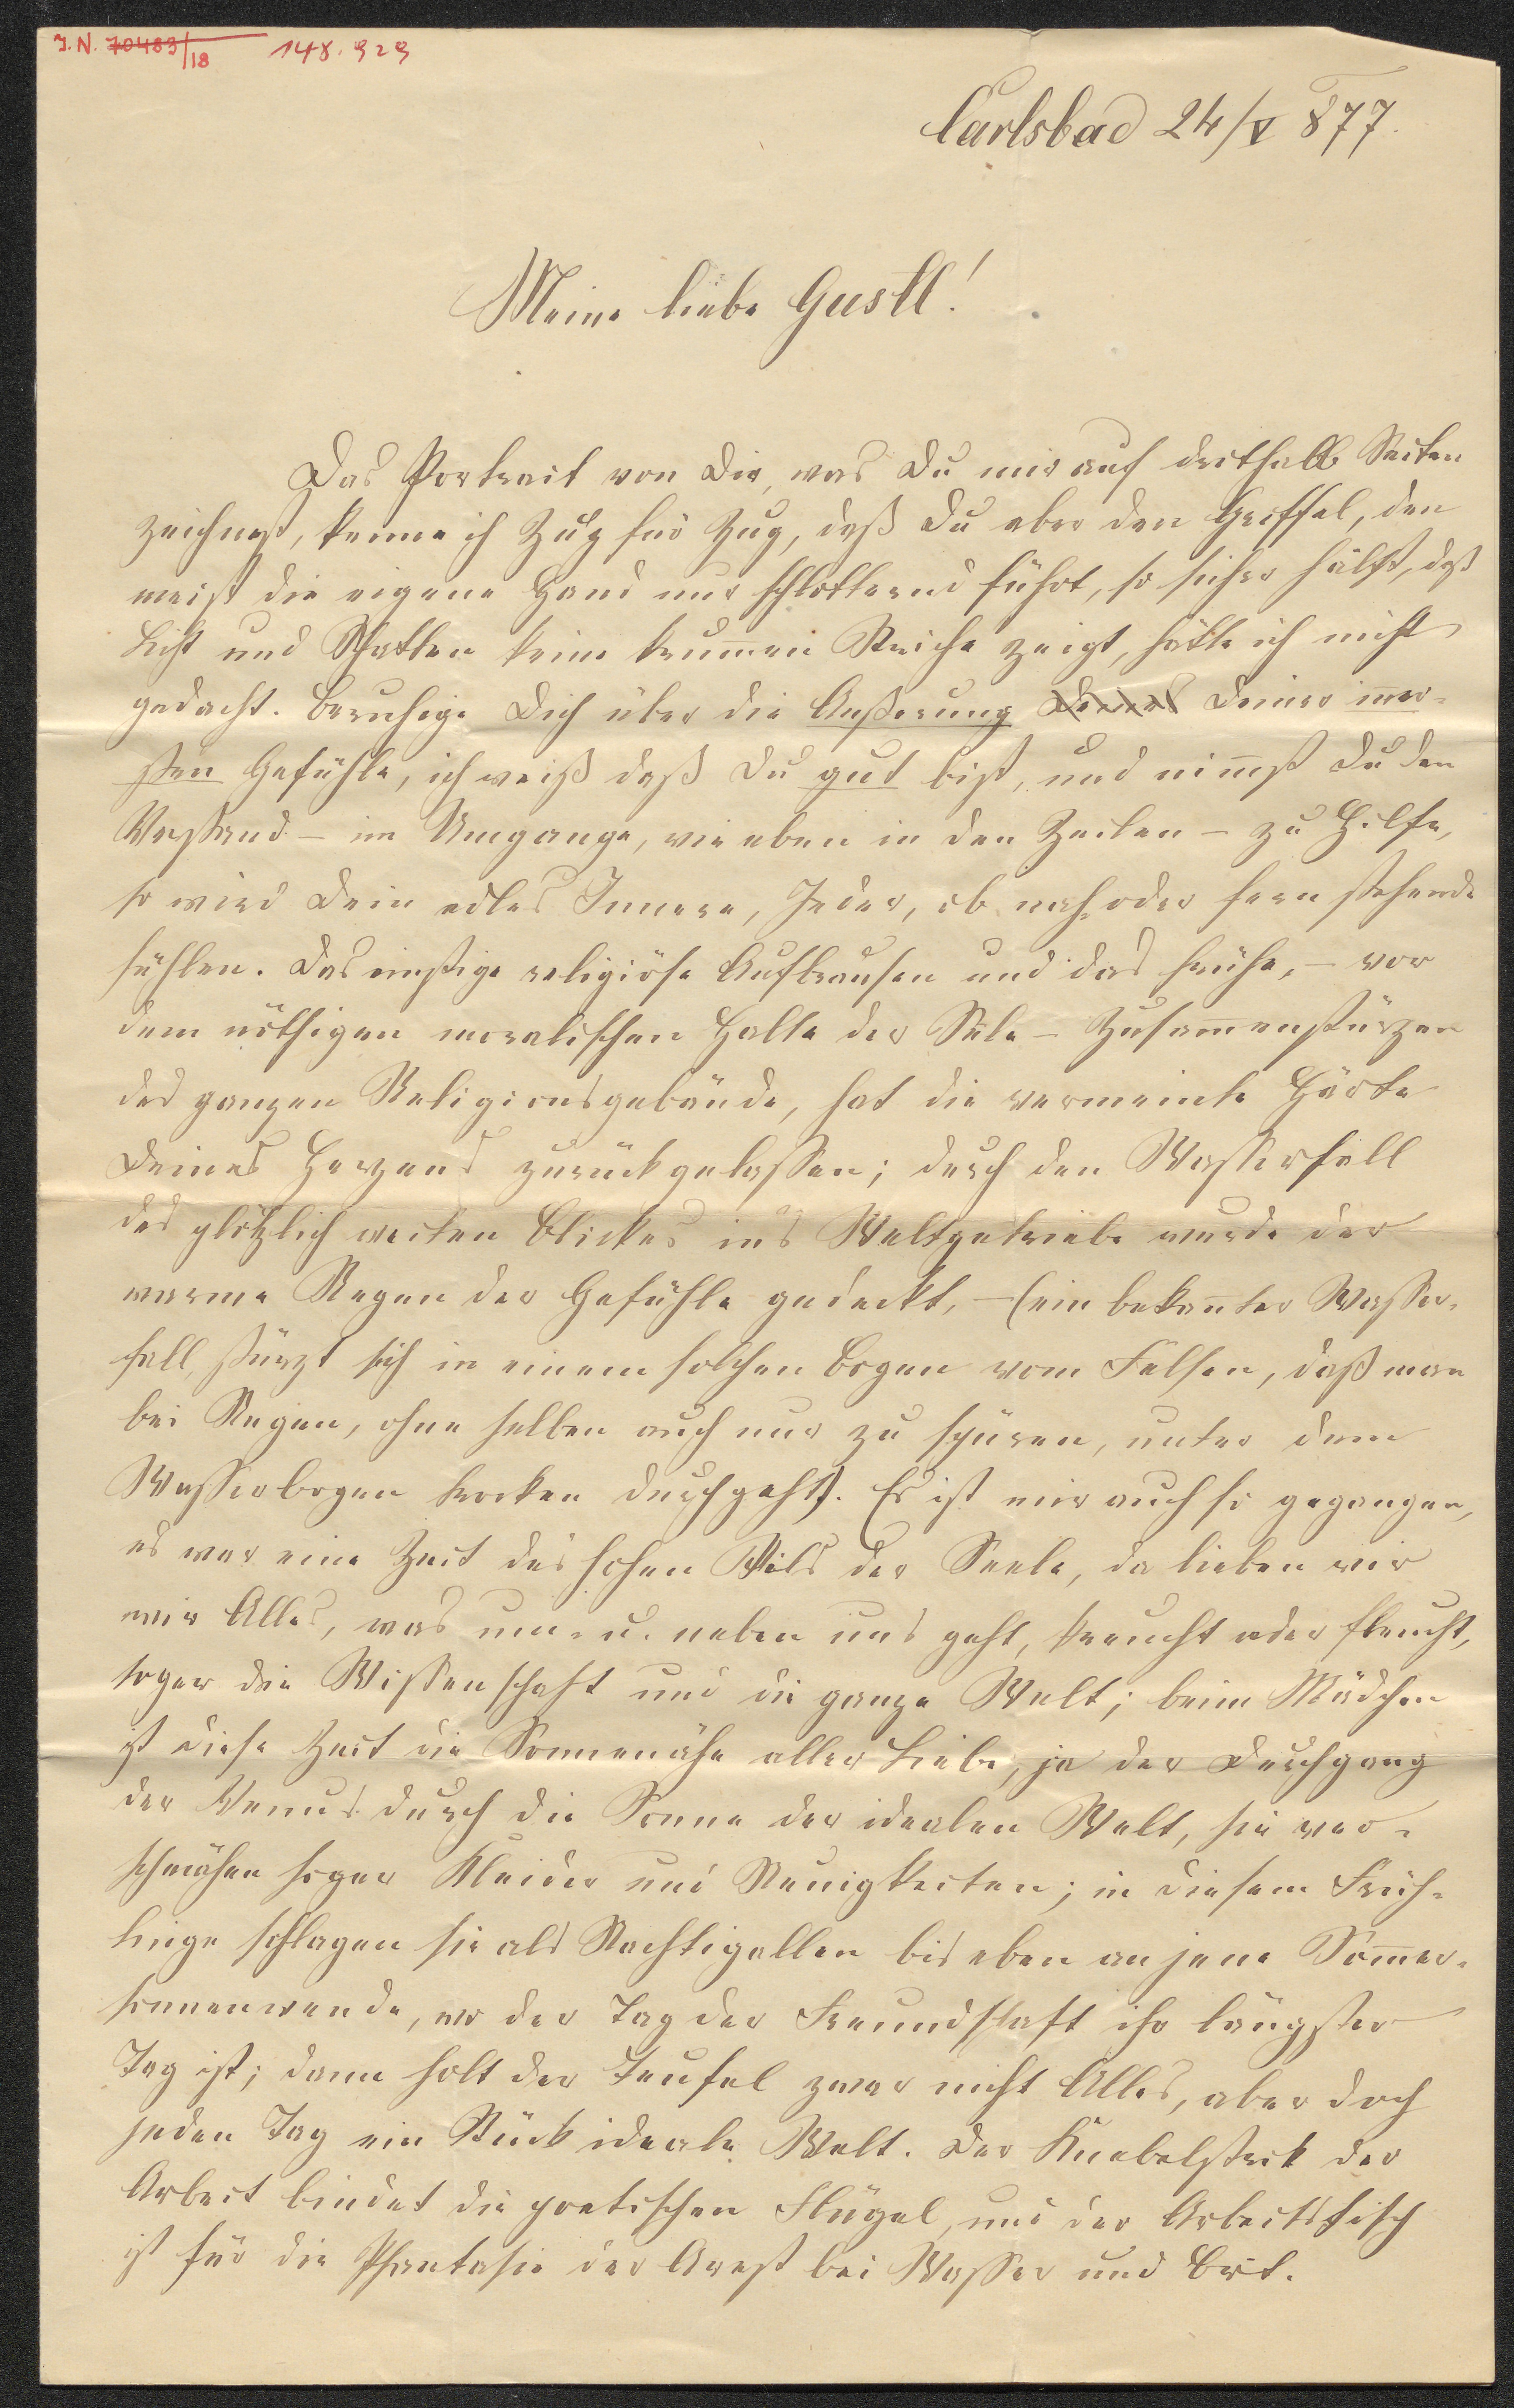 I.N. 70483/18 148.929
Carlsbad 24/V 877.
Meine liebe Gustl!
Das Portrait von Dir, was Du mir auf drithalb Seiten
zeichnest, kenne ich Zug für Zug, daß Du aber den Griffel, den
meist die eigene Hand nur schlotternd führt, so sicher hälst, daß
Licht und Schatten keine krum̄en Striche zeigt, hätte ich nicht
gedacht. Beruhige Dich über die Äußerung Deines Deiner inner-
sten Gefühle, ich weiß daß Du gut bist, und nim̄st Du den
Verstand – im Umgange, wie eben in den Zeilen – zu Hilfe,
so wird Dein edles Innere, Jeder, ob nah oder fern stehende
fühlen. Das einstige religiöse Aufbrausen und das frühe, – vor
dem nöthigen moralischen Halte der Sele – Zusam̄enstürzen
des ganzen Religionsgebäude, hat die vermeinte Härte
Deines Herzens zurückgelassen; durch den Wasserfall
des plötzlich weiten Blickes ins Weltgetriebe wurde der
warme Regen der Gefühle gedeckt, – (ein bekan̄ter Wasser-
fall, stürzt sich in einem solchen Bogen vom Felsen, daß man
bei Regen, ohne selben auch nur zu spüren, unter dem
Wasserbogen trocken durchgeht). Es ist mir auch so gegangen,
es war eine Zeit des hohen Stils der Seele, da lieben wir
wir Alles, was um- u. neben uns geht, kreucht oder fleucht,
sogar die Wissenschaft und die ganze Welt; beim Mädchen
ist diese Zeit die Sonnenähe aller Liebe, ja der Durchgang
der Venus durch die Sonne der idealen Welt, sie ver-
schmähen sogar Kleider und Neuigkeiten; in diesem Früh-
linge schlagen sie als Nachtigallen bis eben an jene Som̄er-
sonnenwende, wo der Tag der Freundschaft ihr längster
Tag ist; dann holt der Teufel zwar nicht Alles, aber doch
jeden Tag ein Stück ideale Welt. Der Knebelstrik der
Arbeit bindet die poetischen Flügel, und der Arbeitstisch
ist für die Phantasie der Arest bei Wasser und Brot.